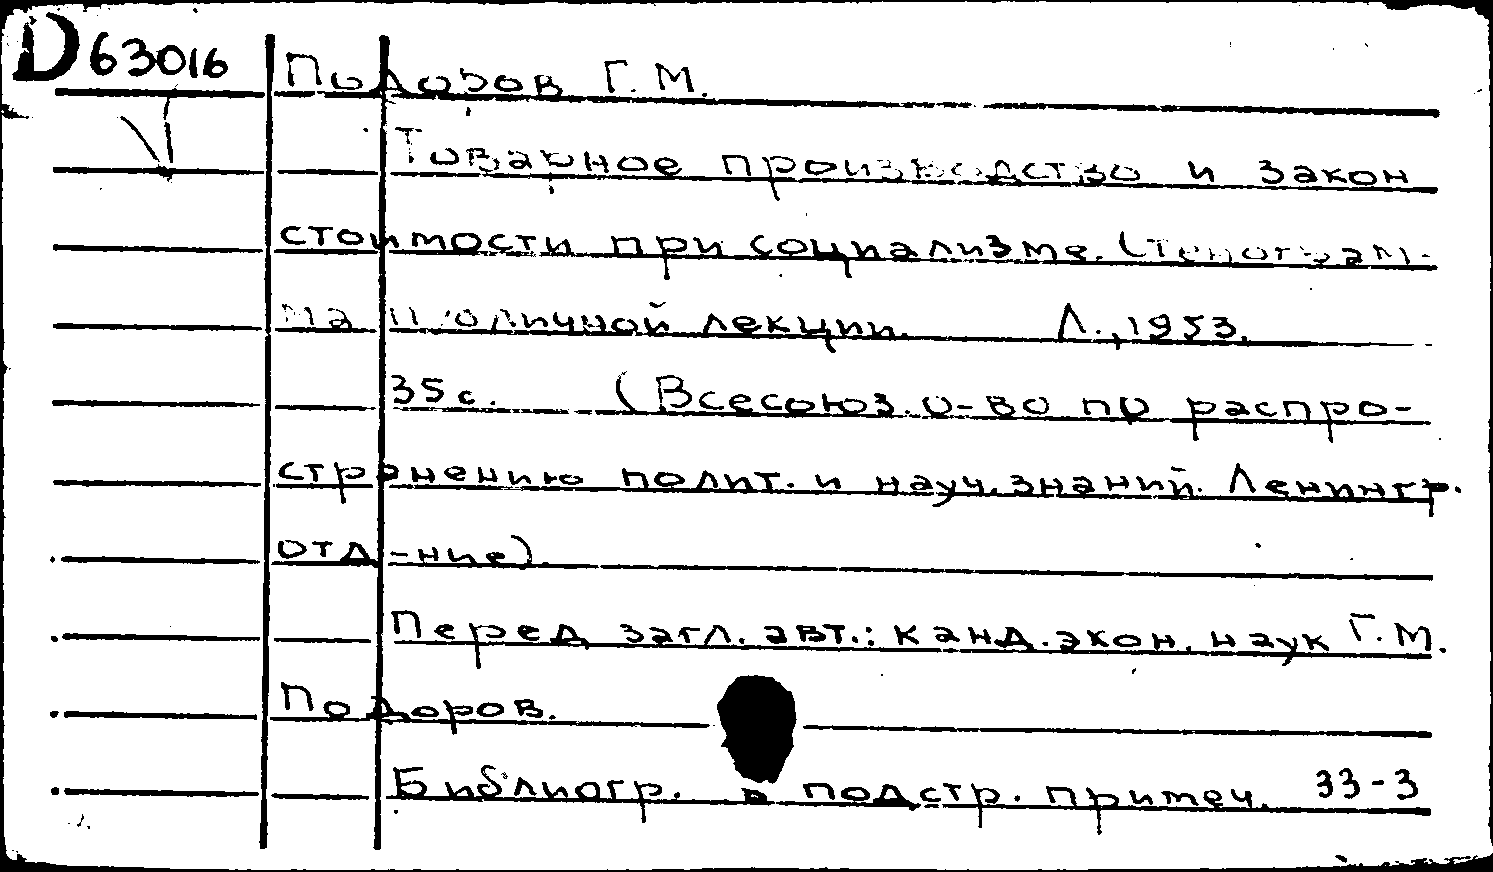 D 63016
Подоров Г. М.
Товарное производство и закон
стоимости при социализме. (Стенограм-
ма публичной лекции. Л., 1953.
35 с. (Всесоюз. о-во по распро-
странению полит. и науч. знаний. Ленингр.
отд-ние).
Перед загл. авт.: канд. экон. наук Г. М.
Подоров.
Библиогр. в подстр. примеч. 33-3